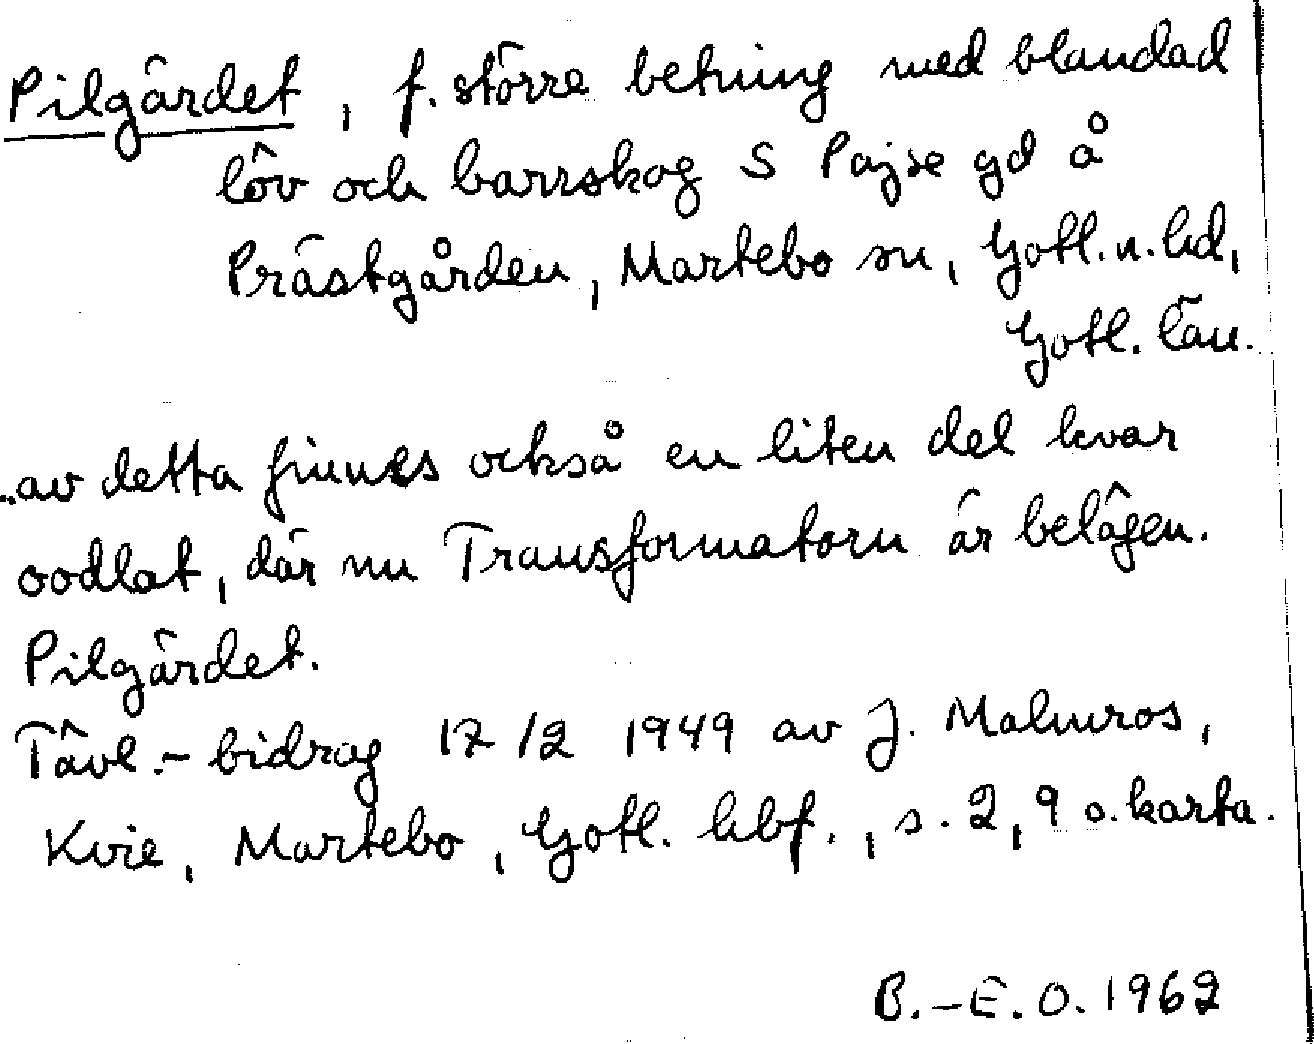 Pilgärdet, f. större betning med blandad
löv och barrskog S Pajse gd å
Prästgården, Martebo sn, Gotl. n. hd,
Gotl. län.
..av detta finnes också en liten del kvar
oodlat, där nu Transformatorn är belägen.
Pilgärdet.
Tävl.-bidrag 17/2 1949 av J. Malmros,
Kvie, Martebo, Gotl. hbf., s. 2, 9 o. karta.
B.-E. O. 1962